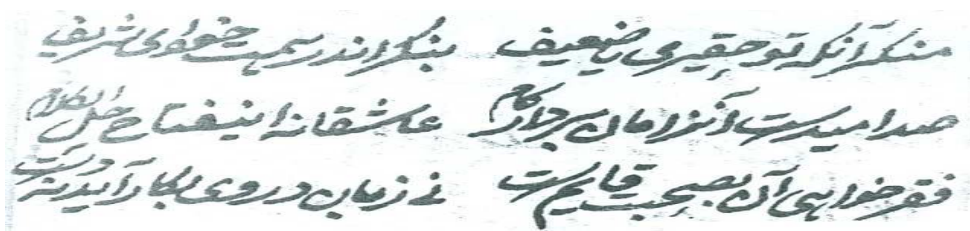 منگر آنکه تو حقیری یا ضعیف بنگر اندر همت خود ای شریف
صد امیدست آنزمان بردار گام عاشقانه اینفتاح خل الکلام
فقر خواهی آن بصحبت قایم ست نے زبان در وی بکار آید نه دست